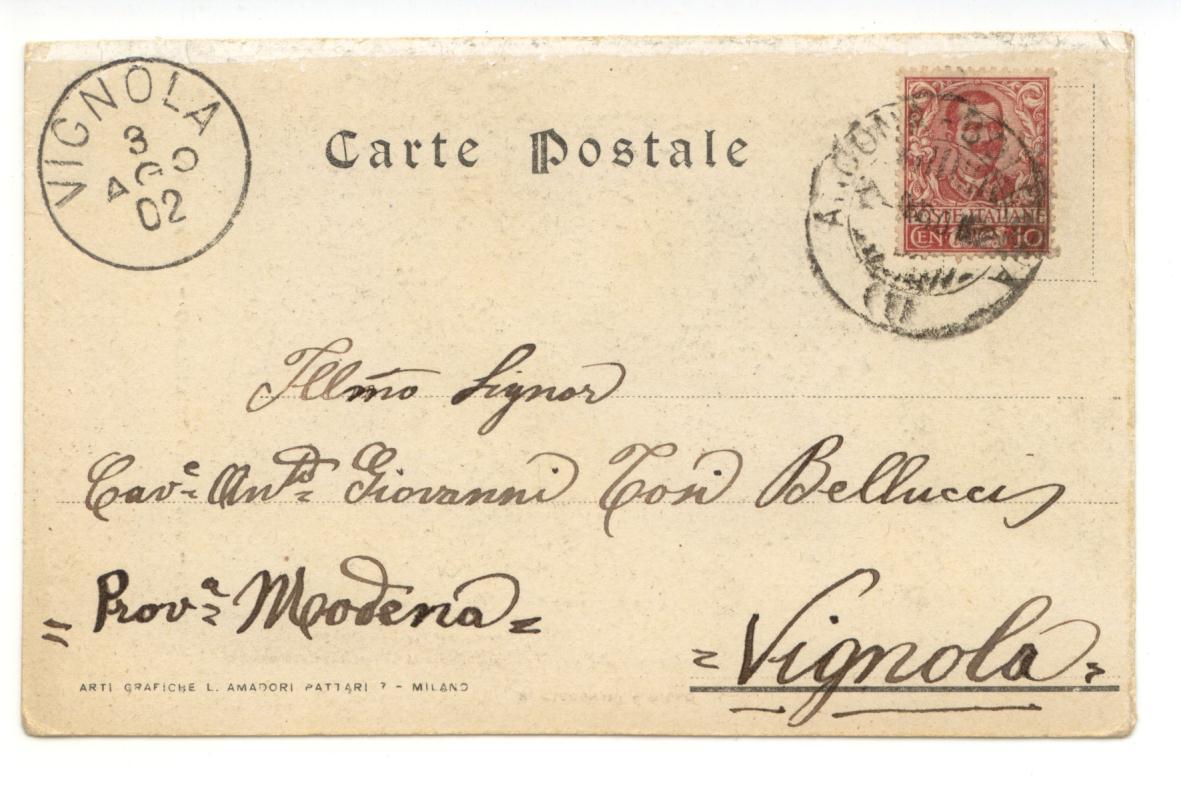 VIGNOLA
3
AGO
02
Carte Postale
POSTE ITALIANE
CENTESIMI 10
Illmo Signor
Cav.e Ant.o Giovanni Tosi Bellucci
= Prov.a Modena =
= Vignola =
ARTI GRAFICHE L. AMADORI PATTARI 7 - MILANO